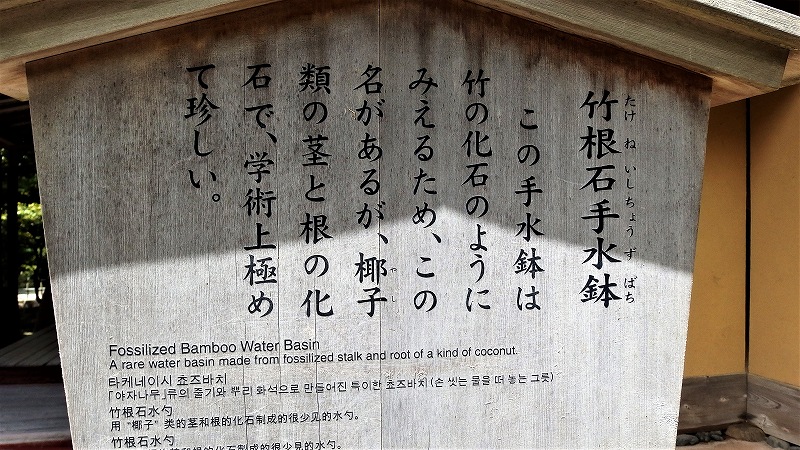 竹根石手水鉢
たけねいしちょうずばち
この手水鉢は
竹の化石のように
みえるため、この
名があるが、椰子
やし
類の茎と根の化
石で、学術上極め
て珍しい。
Fossilized Bamboo Water Basin
A rare water basin made from fossilized stalk and root of a kind of coconut.
타케네이시 쵸즈바치
「야자나무」류의 줄기와 뿌리 화석으로 만들어진 특이한 쵸즈바치 (손 씻는 물을 떠 놓는 그릇)
竹根石水勺
用 "椰子" 类的茎和根的化石制成的很少见的水勺。
竹根石水勺
的茎和根的化石制成的很少見的水勺。